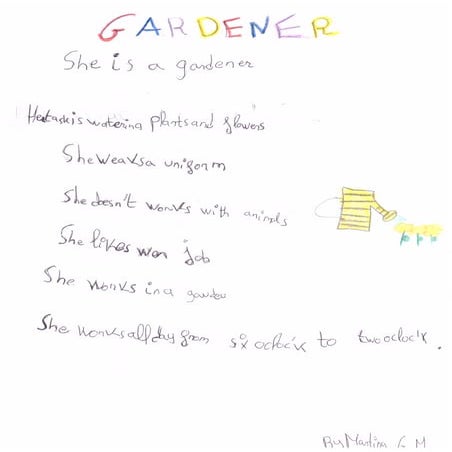 GARDENER
She is a gardener
Her task is watering plants and flowers
She wears a uniform
She doesn't works with animals
She likes her job
She works in a garden
She works all day from six oclock to two oclock.
By Martina G M